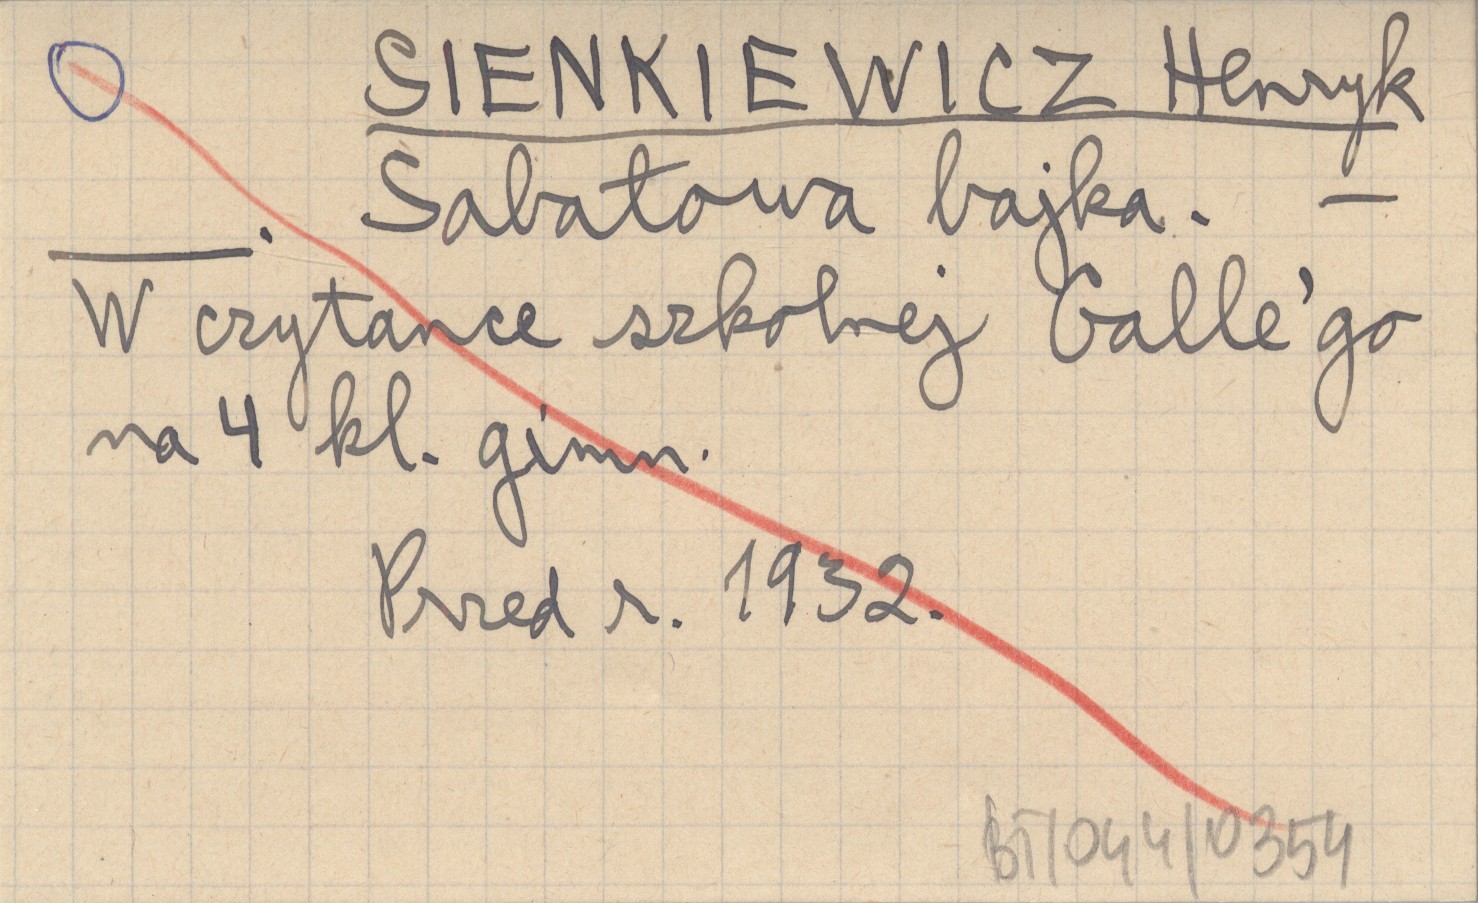 SIENKIEWICZ Henryk
Sabatowa bajka. —
———.
W czytance szkolnej Galle'go
na 4 kl. gimn.
Przed r. 1932.
BT/044/0354